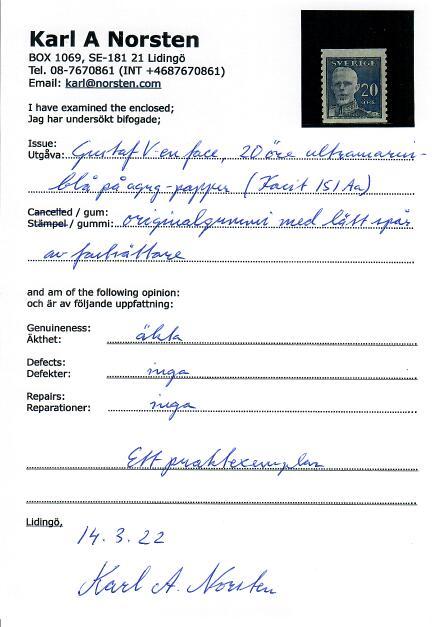 Karl A Norsten
BOX 1069, SE-181 21 Lidingö
Tel. 08-7670861 (INT +4687670861)
Email: karl@norsten.com
I have examined the enclosed;
Jag har undersökt bifogade;
SVERIGE
20
ÖRE
Issue:
Utgåva: Gustaf V-en face, 20 öre ultramarin-
blå på agrg-papper (Facit 151Aa)
Cancelled / gum:
Stämpel / gummi: originalgummi med lätt spår
av fastsättare
and am of the following opinion:
och är av följande uppfattning:
Genuineness:
Äkthet: äkta
Defects:
Defekter: inga
Repairs:
Reparationer: inga
Ett praktexemplar
Lidingö,
14.3.22
Karl A. Norsten